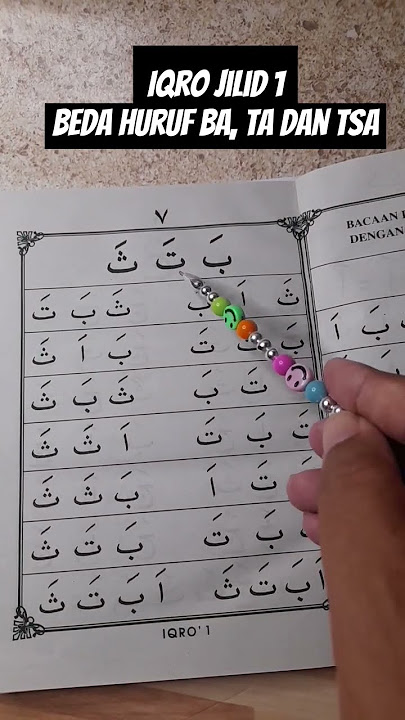 IQRO JILID 1
BEDA HURUF BA, TA DAN TSA
٧
بَ تَ ثَ
ثَ اَ بَ ثَ بَ تَ
بَ تَ بَ اَ ثَ
تَ بَ ثَ بَ ثَ
تَ بَ تَ اَ ثَ ثَ
تَ اَ بَ ثَ ثَ
بَ تَ بَ تَ ثَ
اَ بَ تَ ثَ اَ بَ تَ ثَ
IQRO' 1
BACAAN
DENGAN
بَ اَ